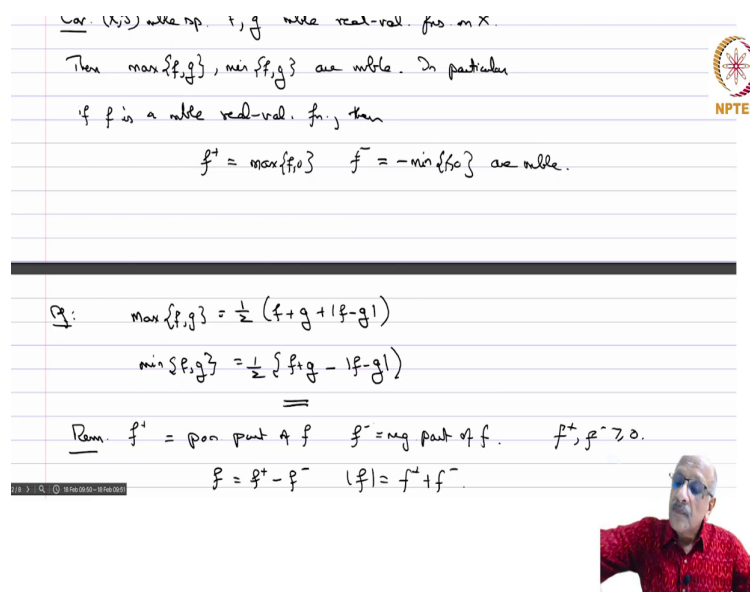 Cor. (X,S) mble sp. f, g mble real-val. fns. on X.
Then max{f,g}, min{f,g} are mble. In particular
if f is a mble real-val. fn., then
f⁺ = max{f,0} f⁻ = -min{f,0} are mble.
NPTE
Pf: max{f,g} = ½ (f+g+|f-g|)
min{f,g} = ½ {f+g - |f-g|)
Rem. f⁺ = pos part of f f⁻ = neg part of f. f⁺, f⁻ ≥ 0.
f = f⁺ - f⁻ |f| = f⁺ + f⁻.
2/8 18 Feb 09:50–18 Feb 09:51